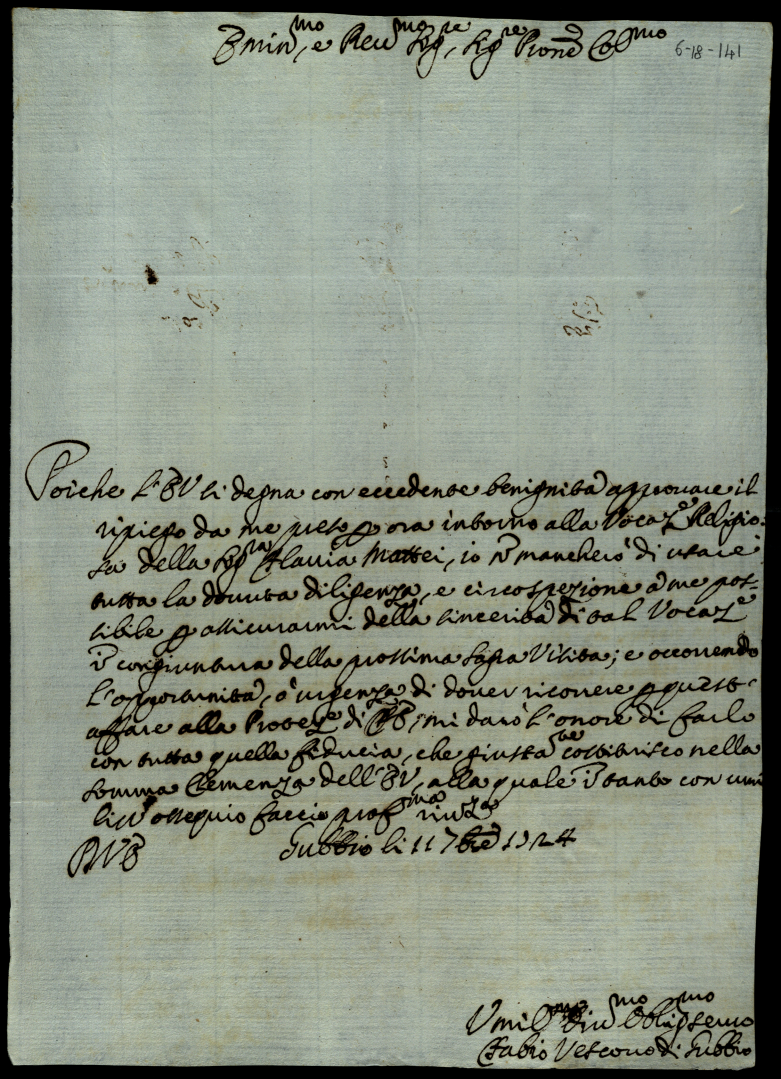 Emin^mo, e Reu^mo Sig^re, Sig^re Prone Col^mo
6-18-141
Poiche l'EV si degna con eccedente benignità approuare il
ripiego da me preso p ora intorno alla Vocaz^e Religio-
sa della Sig^ra Flauia Mattei, io ñ mancherò di usare
tutta la douuta diligenza, e circospezione à me pos-
sibile p assicurarmi della sincerità di tal Vocaz^e
ĩ congiuntura della prossima Sagra Visita; e occorrendo
l'opportunità, ò urgenza di douer ricorrere p questo
affare alla Protez^e di EV, mi darò l'onore di farlo
con tutta quella fiducia, che giustam^te costituisco nella
somma Clemenza dell'EV, alla quale ĩ tanto con umi
liss^o ossequio faccio prof^ma riu^za
DVE Gubbio li 11 7bre 1724
Umil^mo Diu^mo Oblig^mo Seruo
Fabio Vescouo di Gubbio